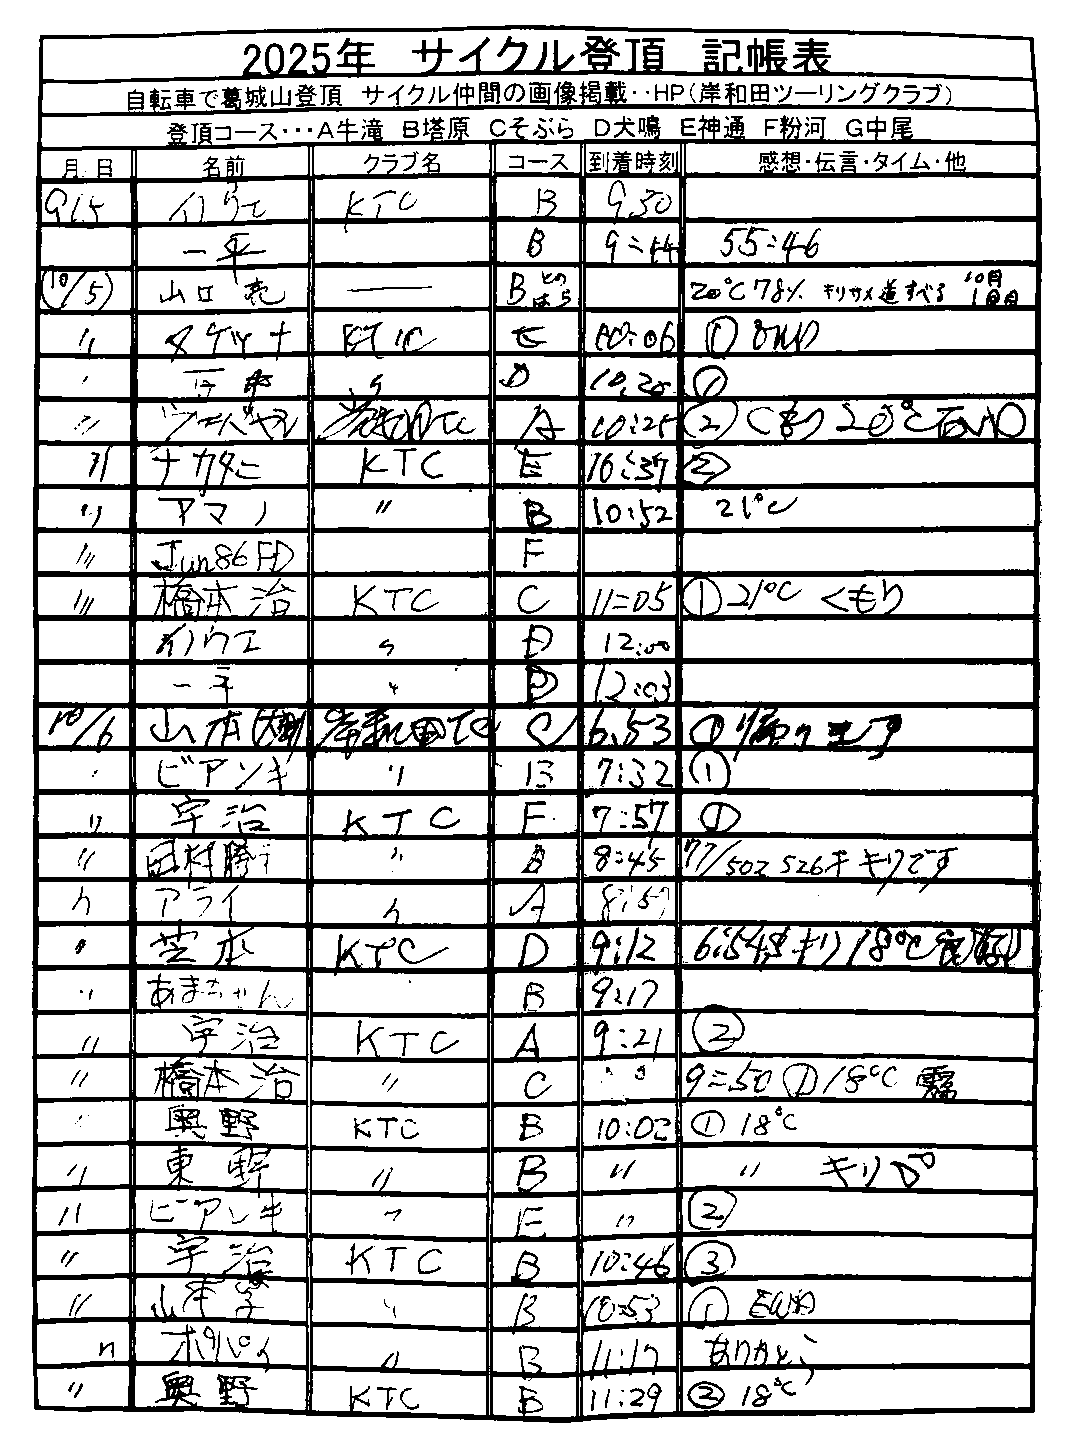 2025年 サイクル登頂 記帳表
自転車で葛城山登頂 サイクル仲間の画像掲載‥HP(岸和田ツーリングクラブ)
登頂コース･･･A牛滝 B塔原 Cそぶら D犬鳴 E神通 F粉河 G中尾
月 日 名前 クラブ名 コース 到着時刻 感想・伝言・タイム・他
KTC B 9,30
一平 B 9:44 55:46
(10/5) 山口 亮 —— Bとのはら 20℃ 78% キリサメ 道すべる 10月1回目
〃 タケツナ KTC E 10:06 ①
〃 D 10,20 ①
〃 A 10:25 ② くもり 20℃
〃 ナカタニ KTC E 10:37 ②
〃 アマノ 〃 B 10:52 21℃
〃 Jun86FD F
〃 橋本 治 KTC C 11:05 ① 21℃ くもり
イノウエ 〃 D 12:00
一平 〃 D 12:03
10/6 山本 岸和田TC C 6.53 ① 帰ります
〃 ビアンキ 〃 B 7:32 ①
〃 宇治 KTC F 7:57 ①
〃 田村勝 〃 B 8:45 77/502 526キ キリです
〃 アライ 〃 A 8:57
〃 芝本 KTC D 9:12 キリ 18℃
〃 あまちゃん B 9:17
〃 宇治 KTC A 9:21 ②
〃 橋本 治 〃 C 〃 9:50 ① 18℃ 霧
〃 奥野 KTC B 10:02 ① 18℃
〃 東野 〃 B 〃 〃 キリ
〃 ビアンキ 〃 E 〃 ②
〃 宇治 KTC B 10:46 ③
〃 山本 〃 B 10:53 ①
〃 ポパイ 〃 B 11:17 ありがとう
〃 奥野 KTC B 11:29 ② 18℃